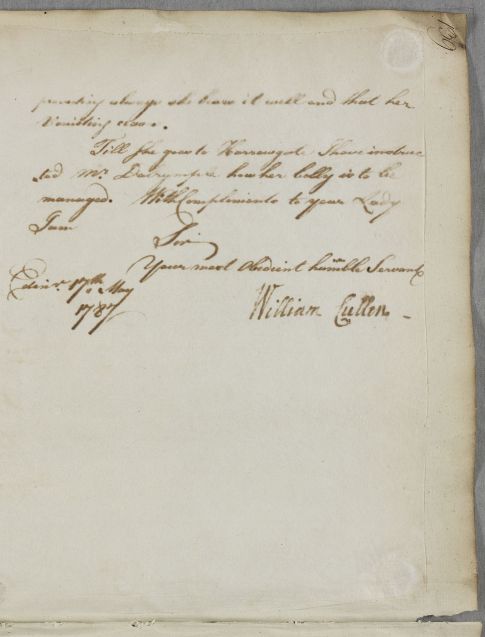 139
providing always she bears it well and that her
Vomiting cease.
Till She goes to Harrowgate I have instruc
ted Mr. Dalrymple how her belly is to be
managed. With Compliments to your Lady
I am
Sir
Your most Obedient humble Servant
Edinr. 17th May
1787
William Cullen